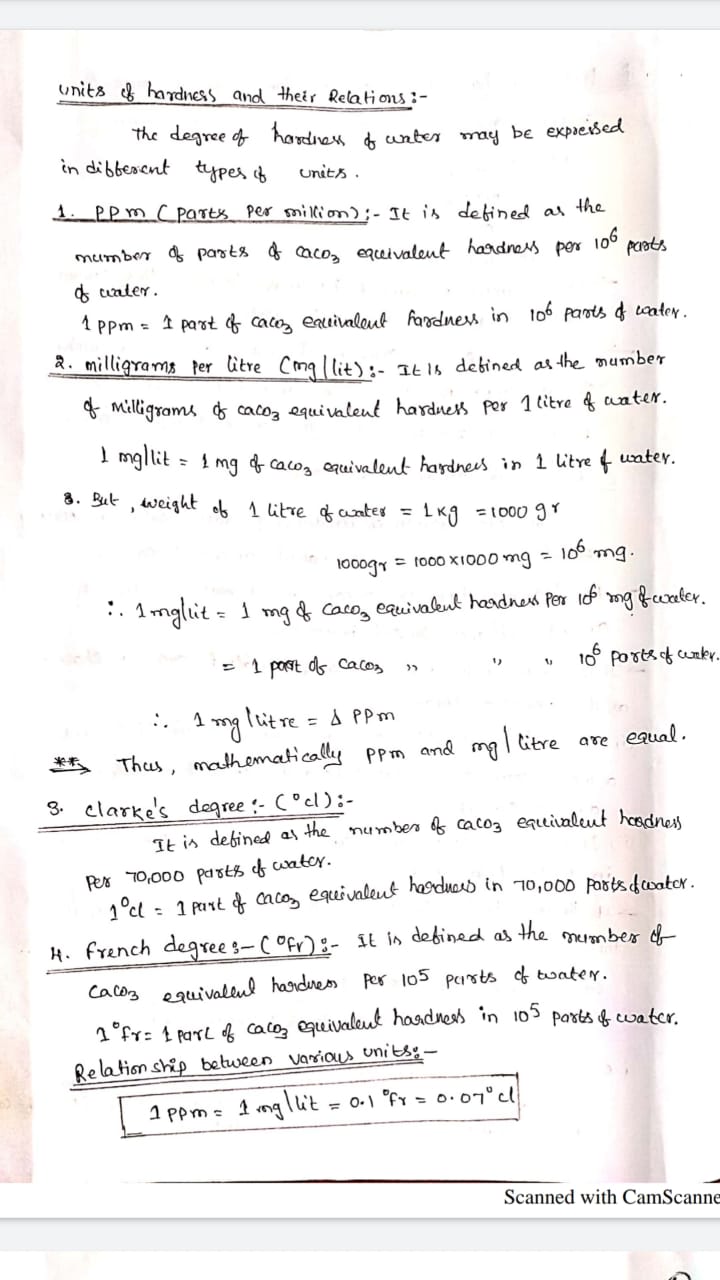 units of hardness and their Relations :-
The degree of hardness of water may be expressed
in different types of units.
1. PPm (parts per million) :- It is defined as the
number of parts of caco3 equivalent hardness per 10⁶ parts
of water.
1 ppm = 1 part of caco3 equivalent hardness in 10⁶ parts of water.
2. milligrams per litre (mg/lit) :- It is defined as the number
of milligrams of caco3 equivalent hardness per 1 litre of water.
1 mg/lit = 1 mg of caco3 equivalent hardness in 1 litre of water.
3. But, weight of 1 litre of water = 1 kg = 1000 gr
1000gr = 1000 x 1000 mg = 10⁶ mg.
∴ 1 mg/lit = 1 mg of caco3 equivalent hardness per 10⁶ mg of water.
= 1 part of caco3 " " " 10⁶ parts of water.
∴ 1 mg/litre = 1 PPm
** Thus, mathematically ppm and mg/litre are equal.
3. clarke's degree :- (°cl) :-
It is defined as the number of caco3 equivalent hardness
per 70,000 parts of water.
1°cl = 1 part of caco3 equivalent hardness in 70,000 parts of water.
4. french degree :- (°fr) :- it is defined as the number of
caco3 equivalent hardness per 105 parts of water.
1°fr = 1 part of caco3 equivalent hardness in 105 parts of water.
Relationship between various units :-
1 ppm = 1 mg/lit = 0.1 °fr = 0.07° cl
Scanned with CamScanne